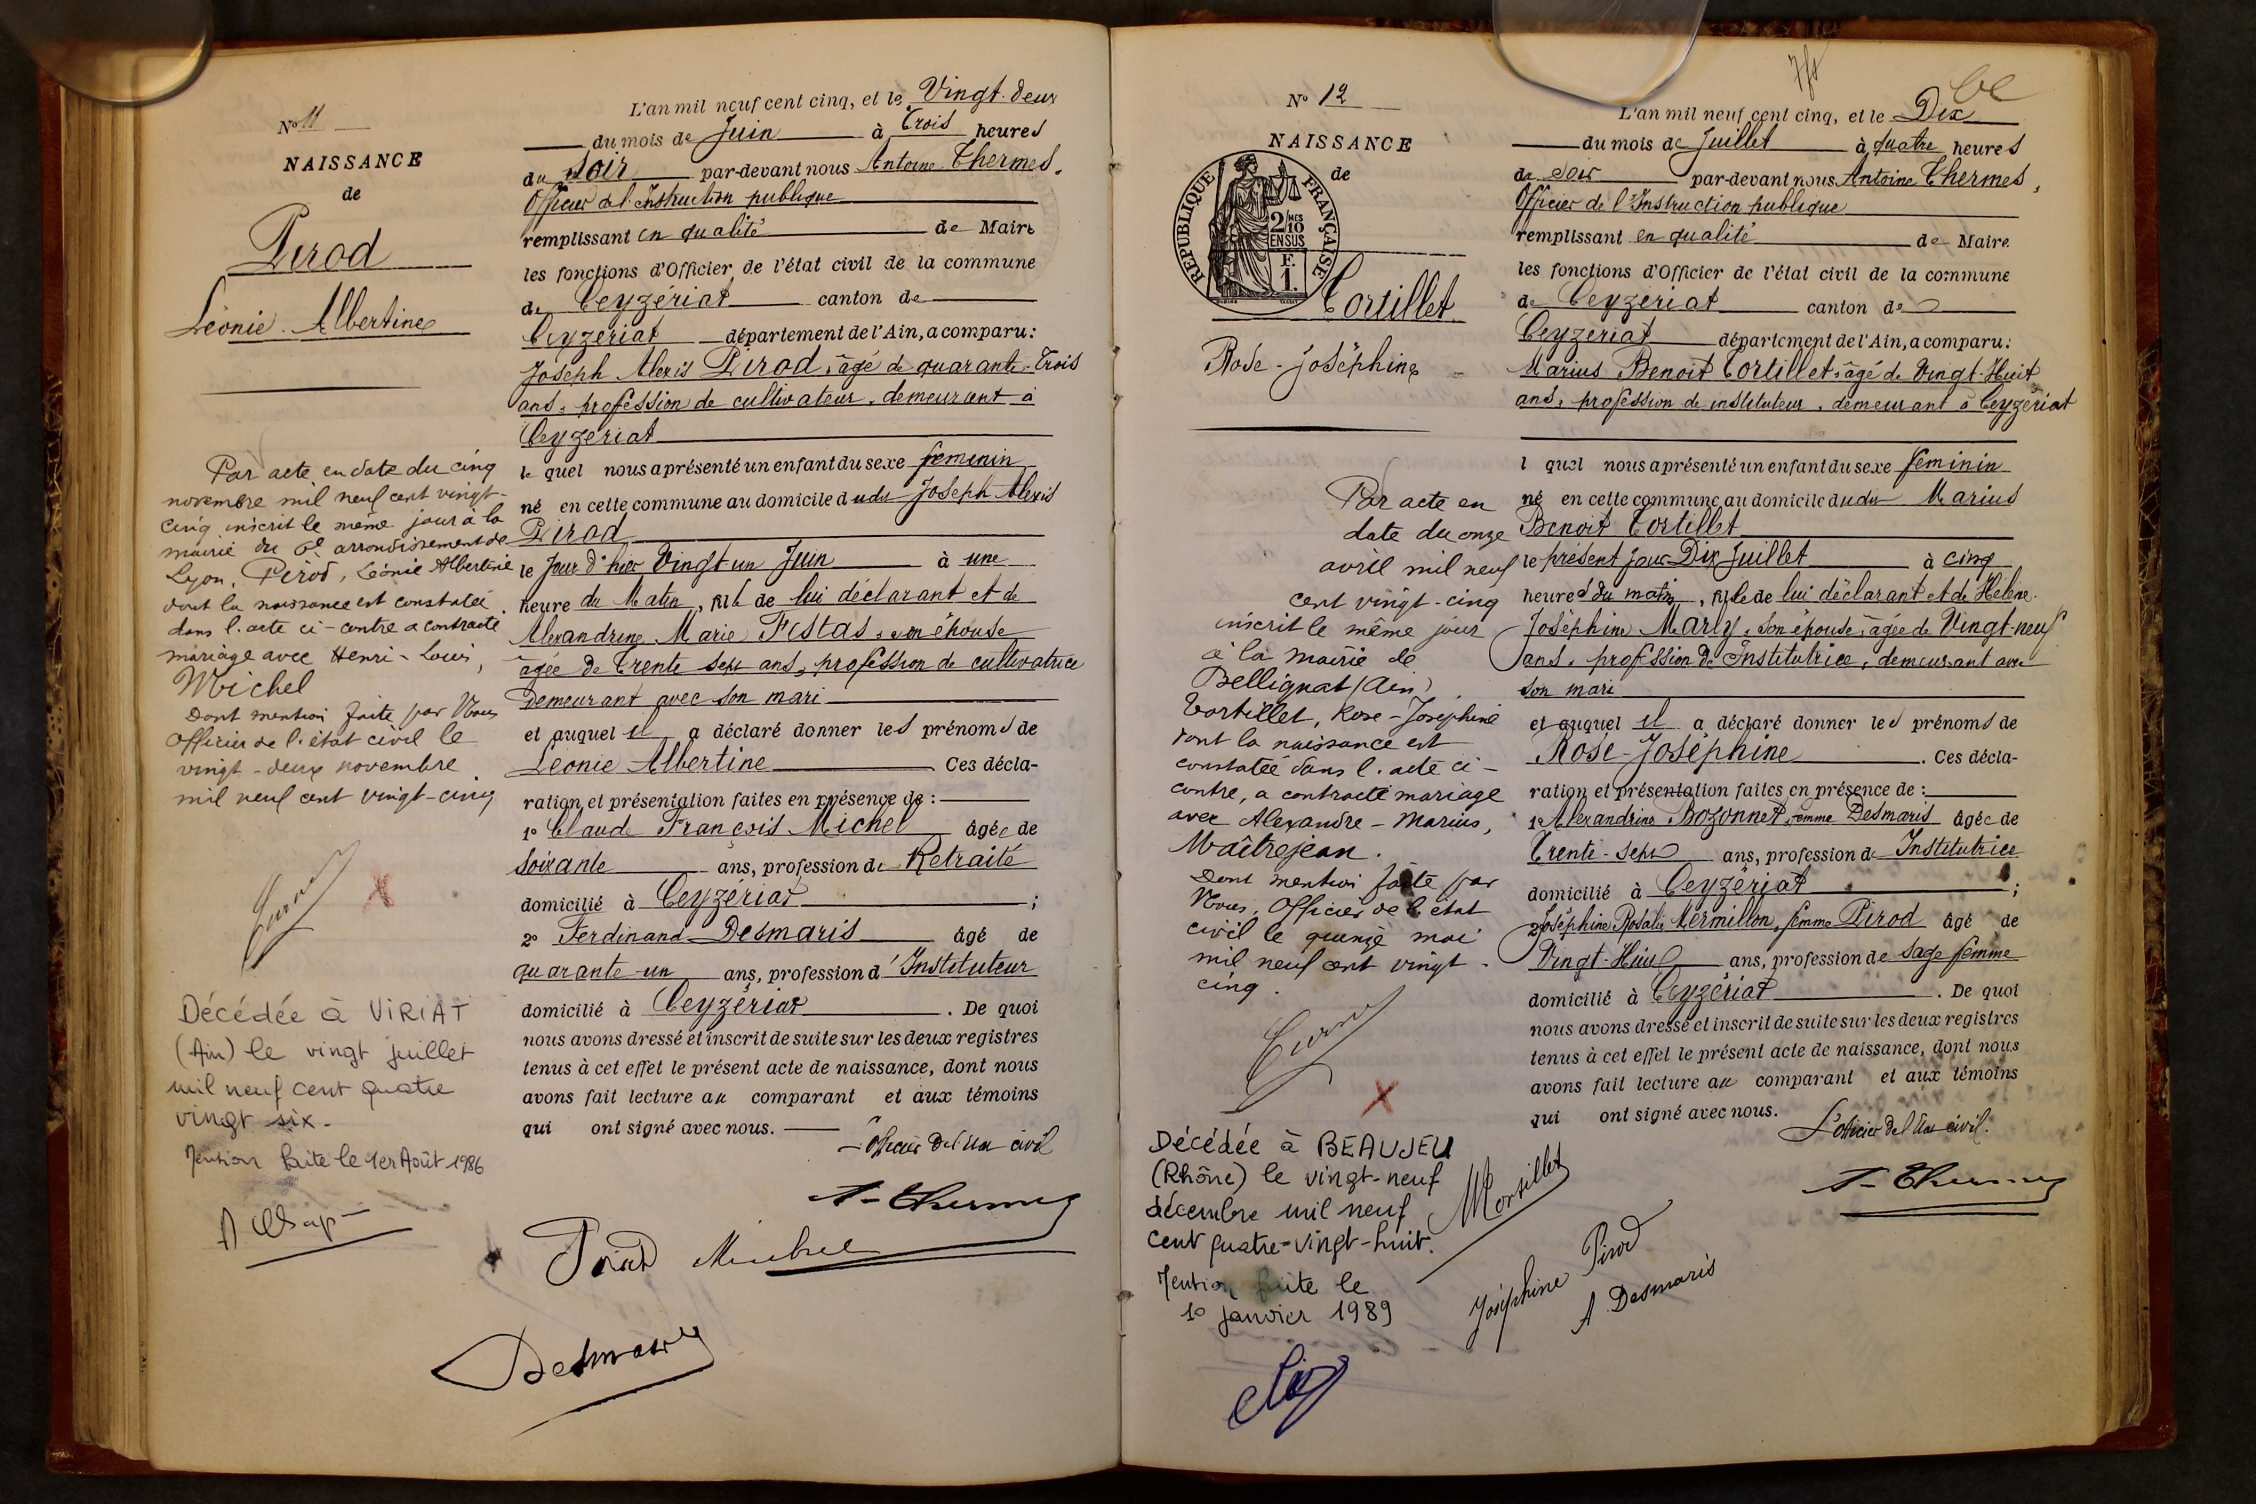 N° 11
NAISSANCE
de
Pirod
Léonie Albertine
Par acte en date du cinq
novembre mil neuf cent vingt-
cinq inscrit le même jour à la
mairie du 6e arrondissement de
Lyon, Pirod, Léonie Albertine
dont la naissance est constatée
dans l'acte ci-contre a contracté
mariage avec Henri-Louis,
Michel
Dont mention faite par Nous
Officier de l'état civil le
vingt-deux novembre
mil neuf cent vingt-cinq
Décédée à VIRIAT
(Ain) le vingt juillet
mil neuf cent quatre
vingt six.
Mention faite le 1er Août 1986
L'an mil neuf cent cinq, et le Vingt-deux
du mois de Juin à Trois heures
du soir par-devant nous Antoine Thermes,
Officier de l'Instruction publique
remplissant en qualité de Maire
les fonctions d'Officier de l'état civil de la commune
de Ceyzériat canton de
Ceyzériat département de l'Ain, a comparu:
Joseph Alexis Pirod, âgé de quarante-Trois
ans, profession de cultivateur, demeurant à
Ceyzériat
lequel nous a présenté un enfant du sexe féminin
né en cette commune au domicile dudit Joseph Alexis
Pirod
le jour d'hier Vingt un Juin à une
heure du Matin, fille de lui déclarant et de
Alexandrine Marie Festas, son épouse
âgée de Trente sept ans, profession de cultivatrice
Demeurant avec son mari
et auquel il a déclaré donner les prénoms de
Léonie Albertine Ces décla-
ration et présentation faites en présence de :
1° Claude François Michel âgé de
soixante ans, profession de Retraité
domicilié à Ceyzériat ;
2° Ferdinand Desmaris âgé de
quarante-un ans, profession d'Instituteur
domicilié à Ceyzériat . De quoi
nous avons dressé et inscrit de suite sur les deux registres
tenus à cet effet le présent acte de naissance, dont nous
avons fait lecture au comparant et aux témoins
qui ont signé avec nous.
L'Officier de l'état civil
A. Thermes
Pirod Michel
Desmaris
N° 12
NAISSANCE
de
RÉPUBLIQUE FRANÇAISE
2/10 MES
EN SUS
F.
1.
Tortillet
Rose-Joséphine
Par acte en
date du onze
avril mil neuf
cent vingt-cinq
inscrit le même jour
à la mairie de
Bellignat (Ain),
Tortillet, Rose-Josephine
dont la naissance est
constatée dans l'acte ci-
contre, a contracté mariage
avec Alexandre-Marius,
Maîtrejean.
Dont mention faite par
Nous, Officier de l'état
civil le quinze mai
mil neuf cent vingt-
cinq.
Décédée à BEAUJEU
(Rhône) le vingt-neuf
décembre mil neuf
cent quatre-vingt-huit.
Mention faite le
10 janvier 1989
L'an mil neuf cent cinq, et le Dix
du mois de Juillet à quatre heures
du soir par-devant nous Antoine Thermes,
Officier de l'Instruction publique
remplissant en qualité de Maire
les fonctions d'Officier de l'état civil de la commune
de Ceyzériat canton de
Ceyzériat département de l'Ain, a comparu:
Marius Benoit Tortillet, âgé de Vingt-Huit
ans, profession de instituteur, demeurant à Ceyzériat
l quel nous a présenté un enfant du sexe féminin
né en cette commune au domicile dudit Marius
Benoit Tortillet
le présent jour Dix Juillet à cinq
heures du matin, fille de lui déclarant et de Hélène
Joséphine Marly, son épouse, âgée de Vingt-neuf
ans, profession de Institutrice, demeurant avec
son mari
et auquel il a déclaré donner les prénoms de
Rose-Joséphine . Ces décla-
ration et présentation faites en présence de :
1° Alexandrine Bozonnet, femme Desmaris âgée de
Trente-sept ans, profession d Institutrice
domicilié à Ceyzériat ;
2° Joséphine Rosalie Vermillon, femme Pirod âgé de
Vingt-Huit ans, profession de sage femme
domicilié à Ceyzériat . De quoi
nous avons dressé et inscrit de suite sur les deux registres
tenus à cet effet le présent acte de naissance, dont nous
avons fait lecture au comparant et aux témoins
qui ont signé avec nous.
L'officier de l'état civil.
A. Thermes
M Tortillet
Joséphine Pirod
A Desmaris